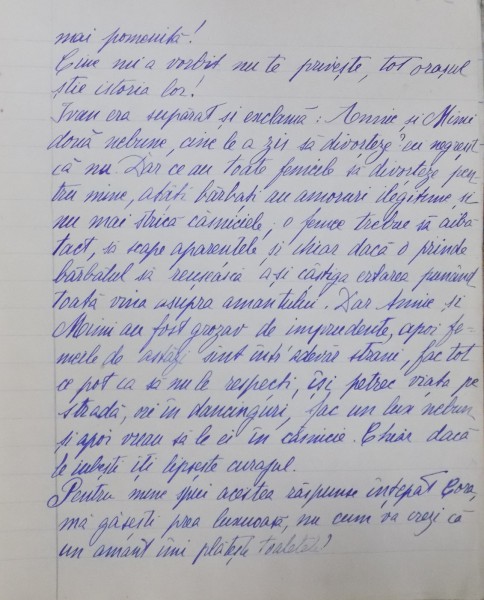 mai pomenită!
Cine mi a vorbit nu te privește, tot orașul
știe istoria lor!
Ivan era supărat și exclamă: Annie și Mimi
două nebune, cine le a zis să divorțeze? eu negreșit
că nu. Dar ce au toate femeile să divorțeze pen-
tru mine, atâți bărbați au amoruri ilegitime și
nu mai strică căsniciele, o femee trebue să aibă
tact, să scape aparențele și chiar dacă o prinde
bărbatul să reușească ași câștiga ertarea punând
toată vina asupra amantului. Dar Annie și
Mimi au fost grozav de imprudente, apoi fe-
meile de astăzi sunt într'adevăr stranii, fac tot
ce pot ca să nu le respecți, își petrec viața pe
stradă, ori în dancinguri, fac un lux nebun
și apoi vreau să le ei în căsnicie. Chiar dacă
le iubești iți lipsește curajul.
Pentru mine spui acestea răspunse înțepat Cora,
mă găsești prea luxuoasă, nu cum va crezi că
un amant îmi plătește toaletele?